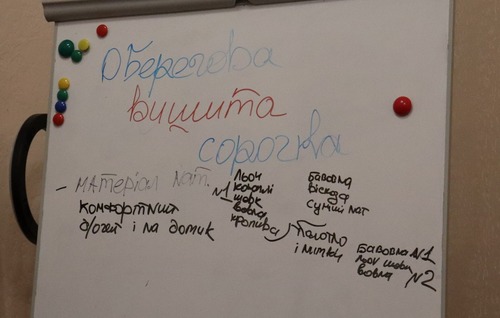 Оберегова
вишита
сорочка
- Матеріал нат.
комфортний
і на дотик
№1
льон
коноплі
шовк
вовна
кропива
бавовна
віскоза
полотно
і нитки
Бавовна №1
льон шовк
вовна №2